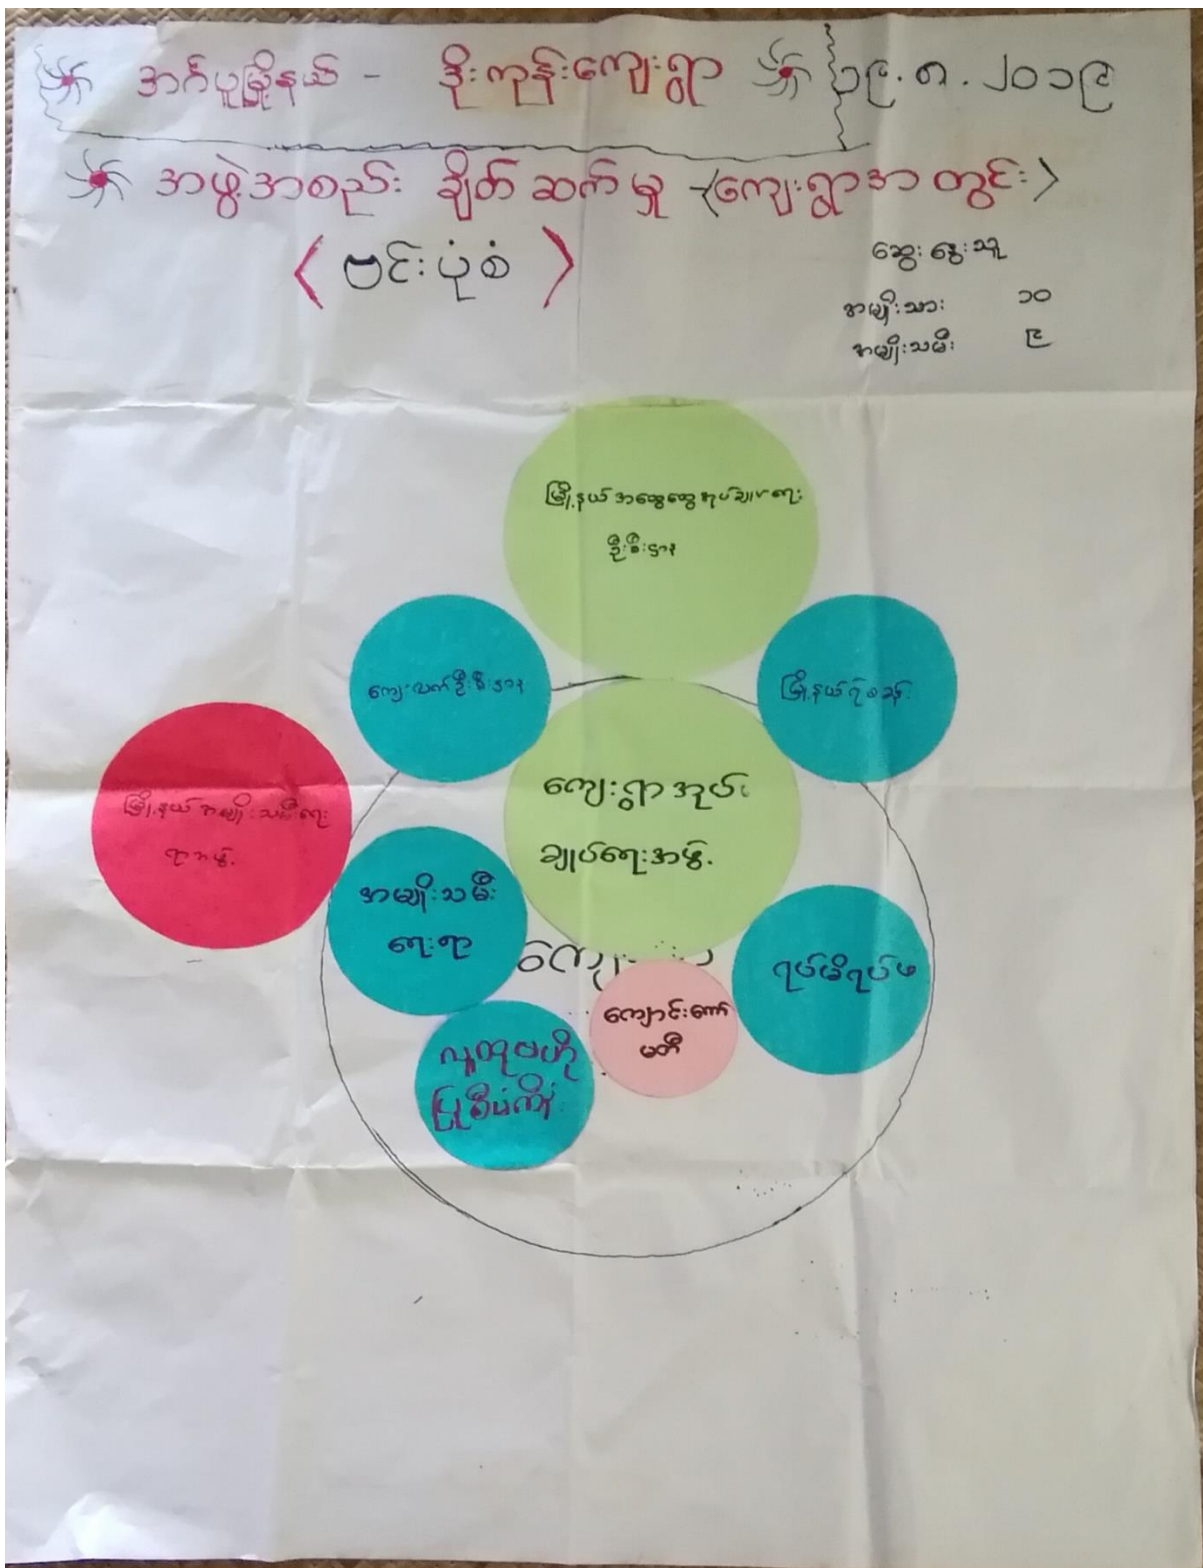 အင်္ဂပူမြို့နယ် - ဒိုးကုန်းကျေးရွာ ၃၉.၈.၂၀၁၉
အဖွဲ့အစည်း ချိတ်ဆက်မှု - (ကျေးရွာအတွင်း)
< ဗင်းပုံစံ >
ဆွေးနွေးသူ
အမျိုးသား ၁၀
အမျိုးသမီး ၉
မြို့နယ်အထွေထွေအုပ်ချုပ်ရေး
ဦးစီးဌာန
ကျေးလက်ဦးစီးဌာန
မြို့နယ်ရဲစခန်း
မြို့နယ်အမျိုးသမီးရေး
ရာအဖွဲ့
ကျေးရွာအုပ်
ချုပ်ရေးအဖွဲ့
အမျိုးသမီး
ရေးရာ
ရပ်မိရပ်ဖ
ကျောင်းကော်
မတီ
လူထုဗဟို
ပြုစီမံကိန်း